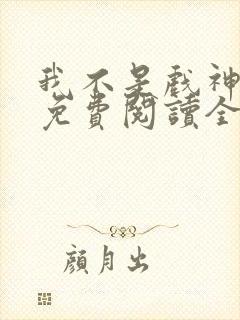 我不是戲神
免費閱讀全
顏月出